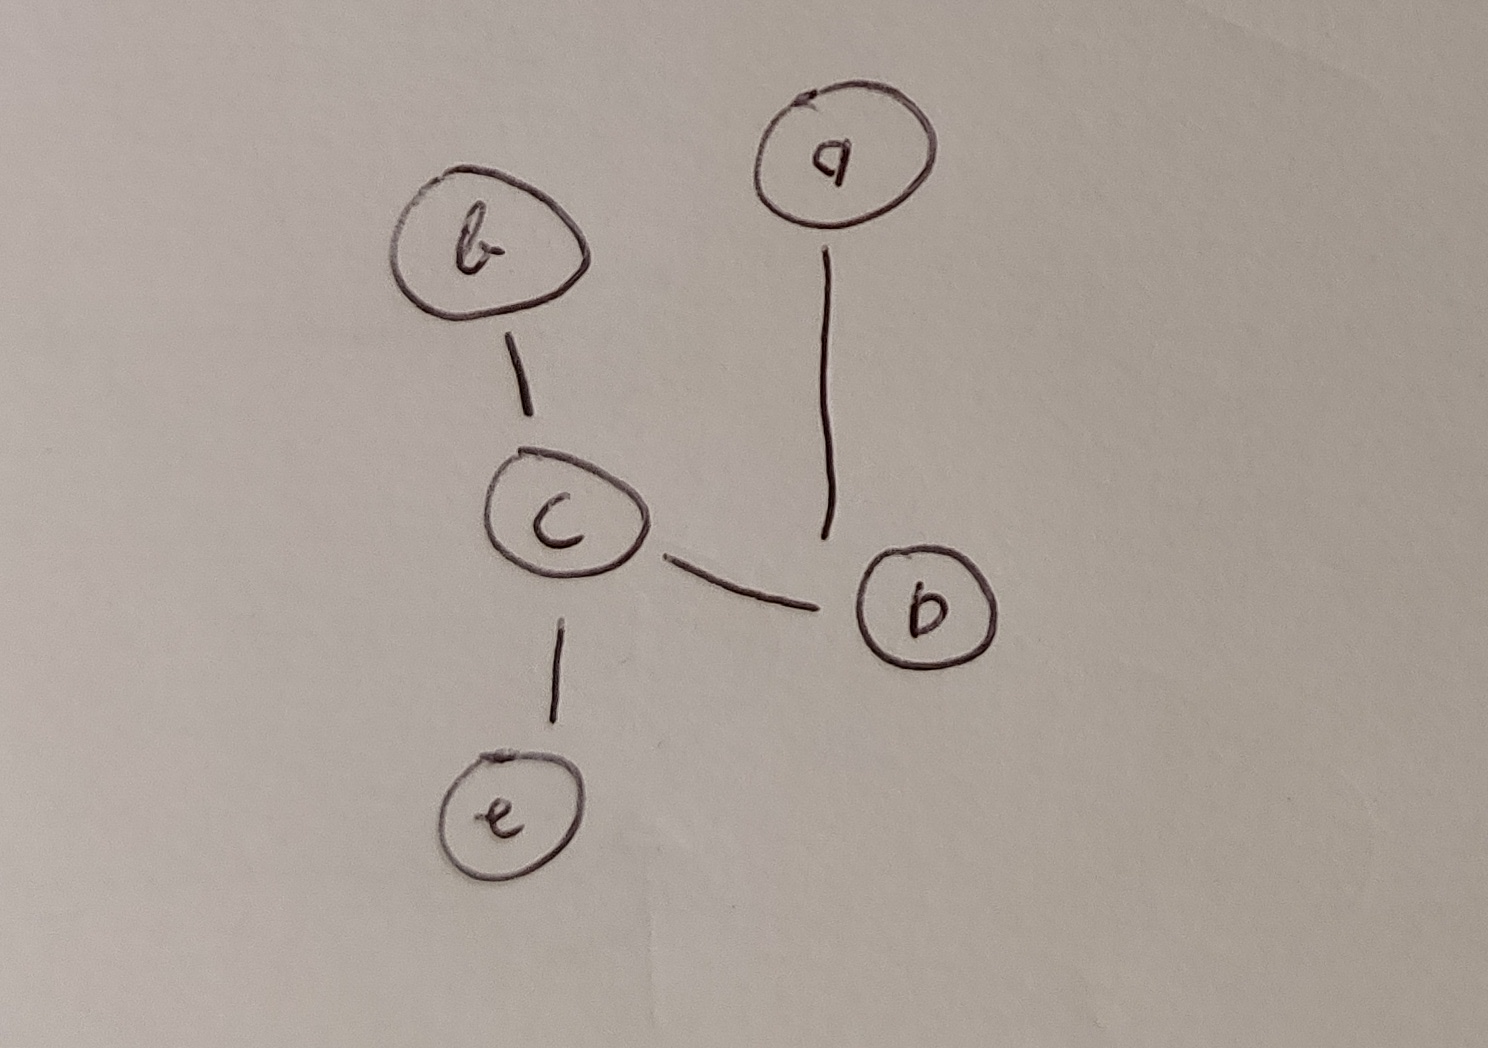 a
b
c
D
e